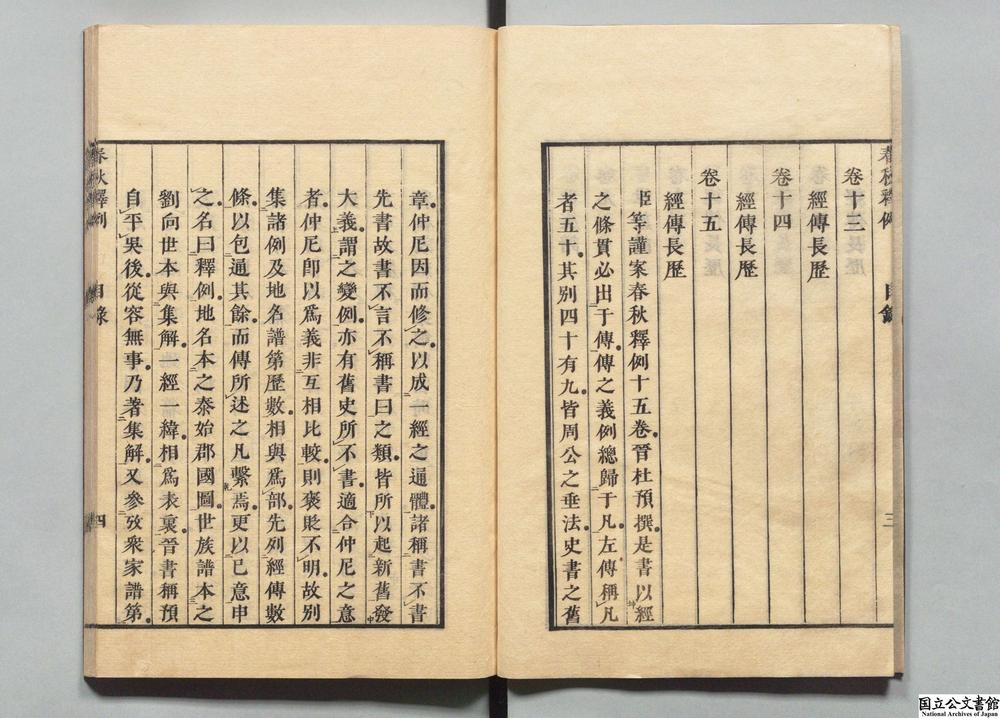 春秋釋例 目錄 三
卷十三
經傳長歷
卷十四
經傳長歷
卷十五
經傳長歷
臣等謹案春秋釋例十五卷晉杜預撰是書以經
之條貫必出于傳傳之義例總歸于凡左傳稱凡
者五十其別四十有九皆周公之垂法史書之舊
章仲尼因而修之以成一經之通體諸稱書不書
先書故書不言不稱書曰之類皆所以起新舊發
大義謂之變例亦有舊史所不書適合仲尼之意
者仲尼即以爲義非互相比較則褒貶不明故別
集諸例及地名譜第歷數相與爲部先列經傳數
條以包通其餘而傳所述之凡繫焉更以己意申
之名曰釋例地名本之泰始郡國圖世族譜本之
劉向世本與集解一經一緯相爲表裏晉書稱預
自平吳後從容無事乃著集解又參攷衆家譜第
春秋釋例 目錄 四
国立公文書館
National Archives of Japan